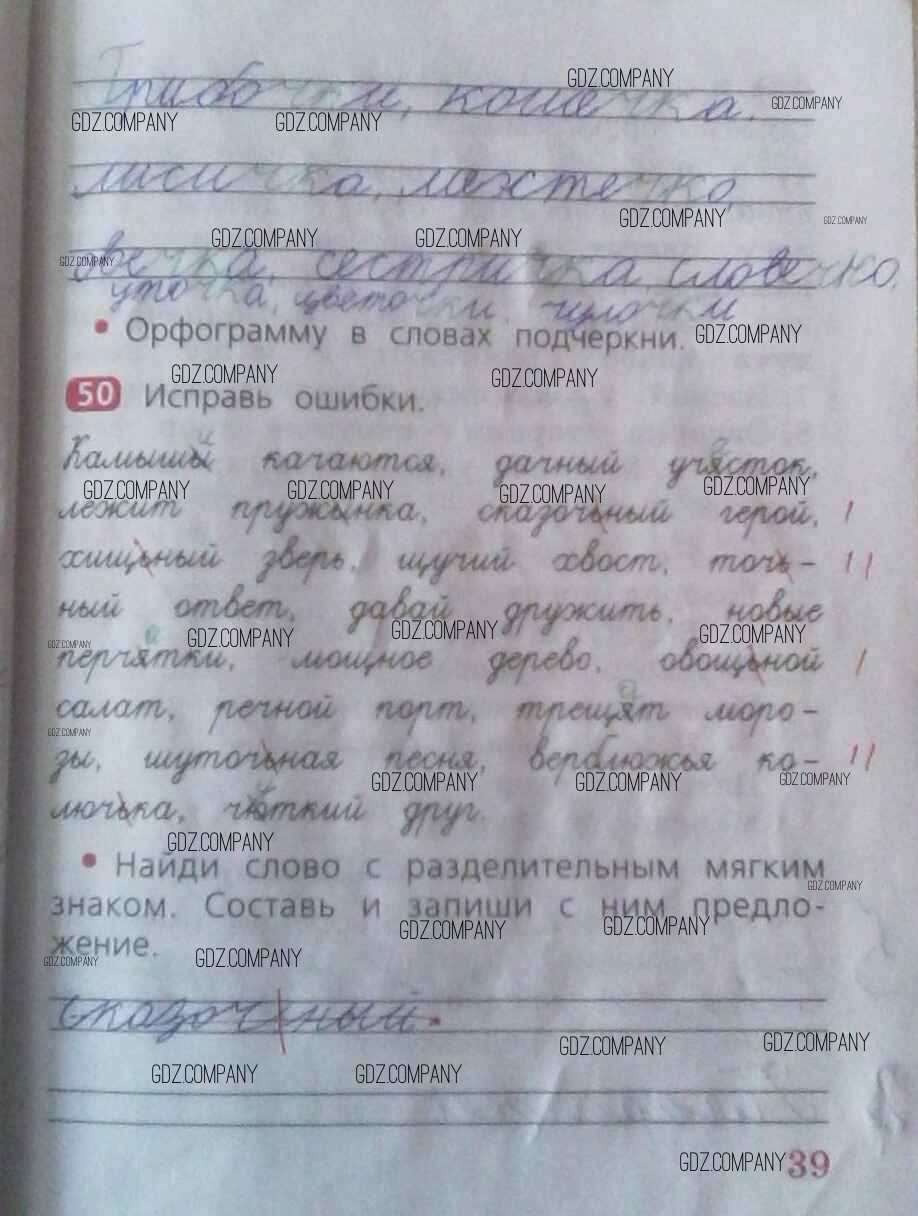 Грибочки, кошечка,
лисичка, местечко,
овечка, сестричка, словечко,
уточка, цветочки, чулочки
• Орфограмму в словах подчеркни.
50 Исправь ошибки.
Камышы качаются, дачный учясток,
лежит пружынка, сказочьный герой,
хищьный зверь, щучий хвост, точь-
ный ответ, давай дружить, новые
перчятки, мощное дерево, овощьной
салат, речной порт, трещят моро-
зы, шуточьная песня, верблюжья ко-
лючька, чюткий друг.
• Найди слово с разделительным мягким
знаком. Составь и запиши с ним предло-
жение.
Сказочный.
39
GDZ.COMPANY